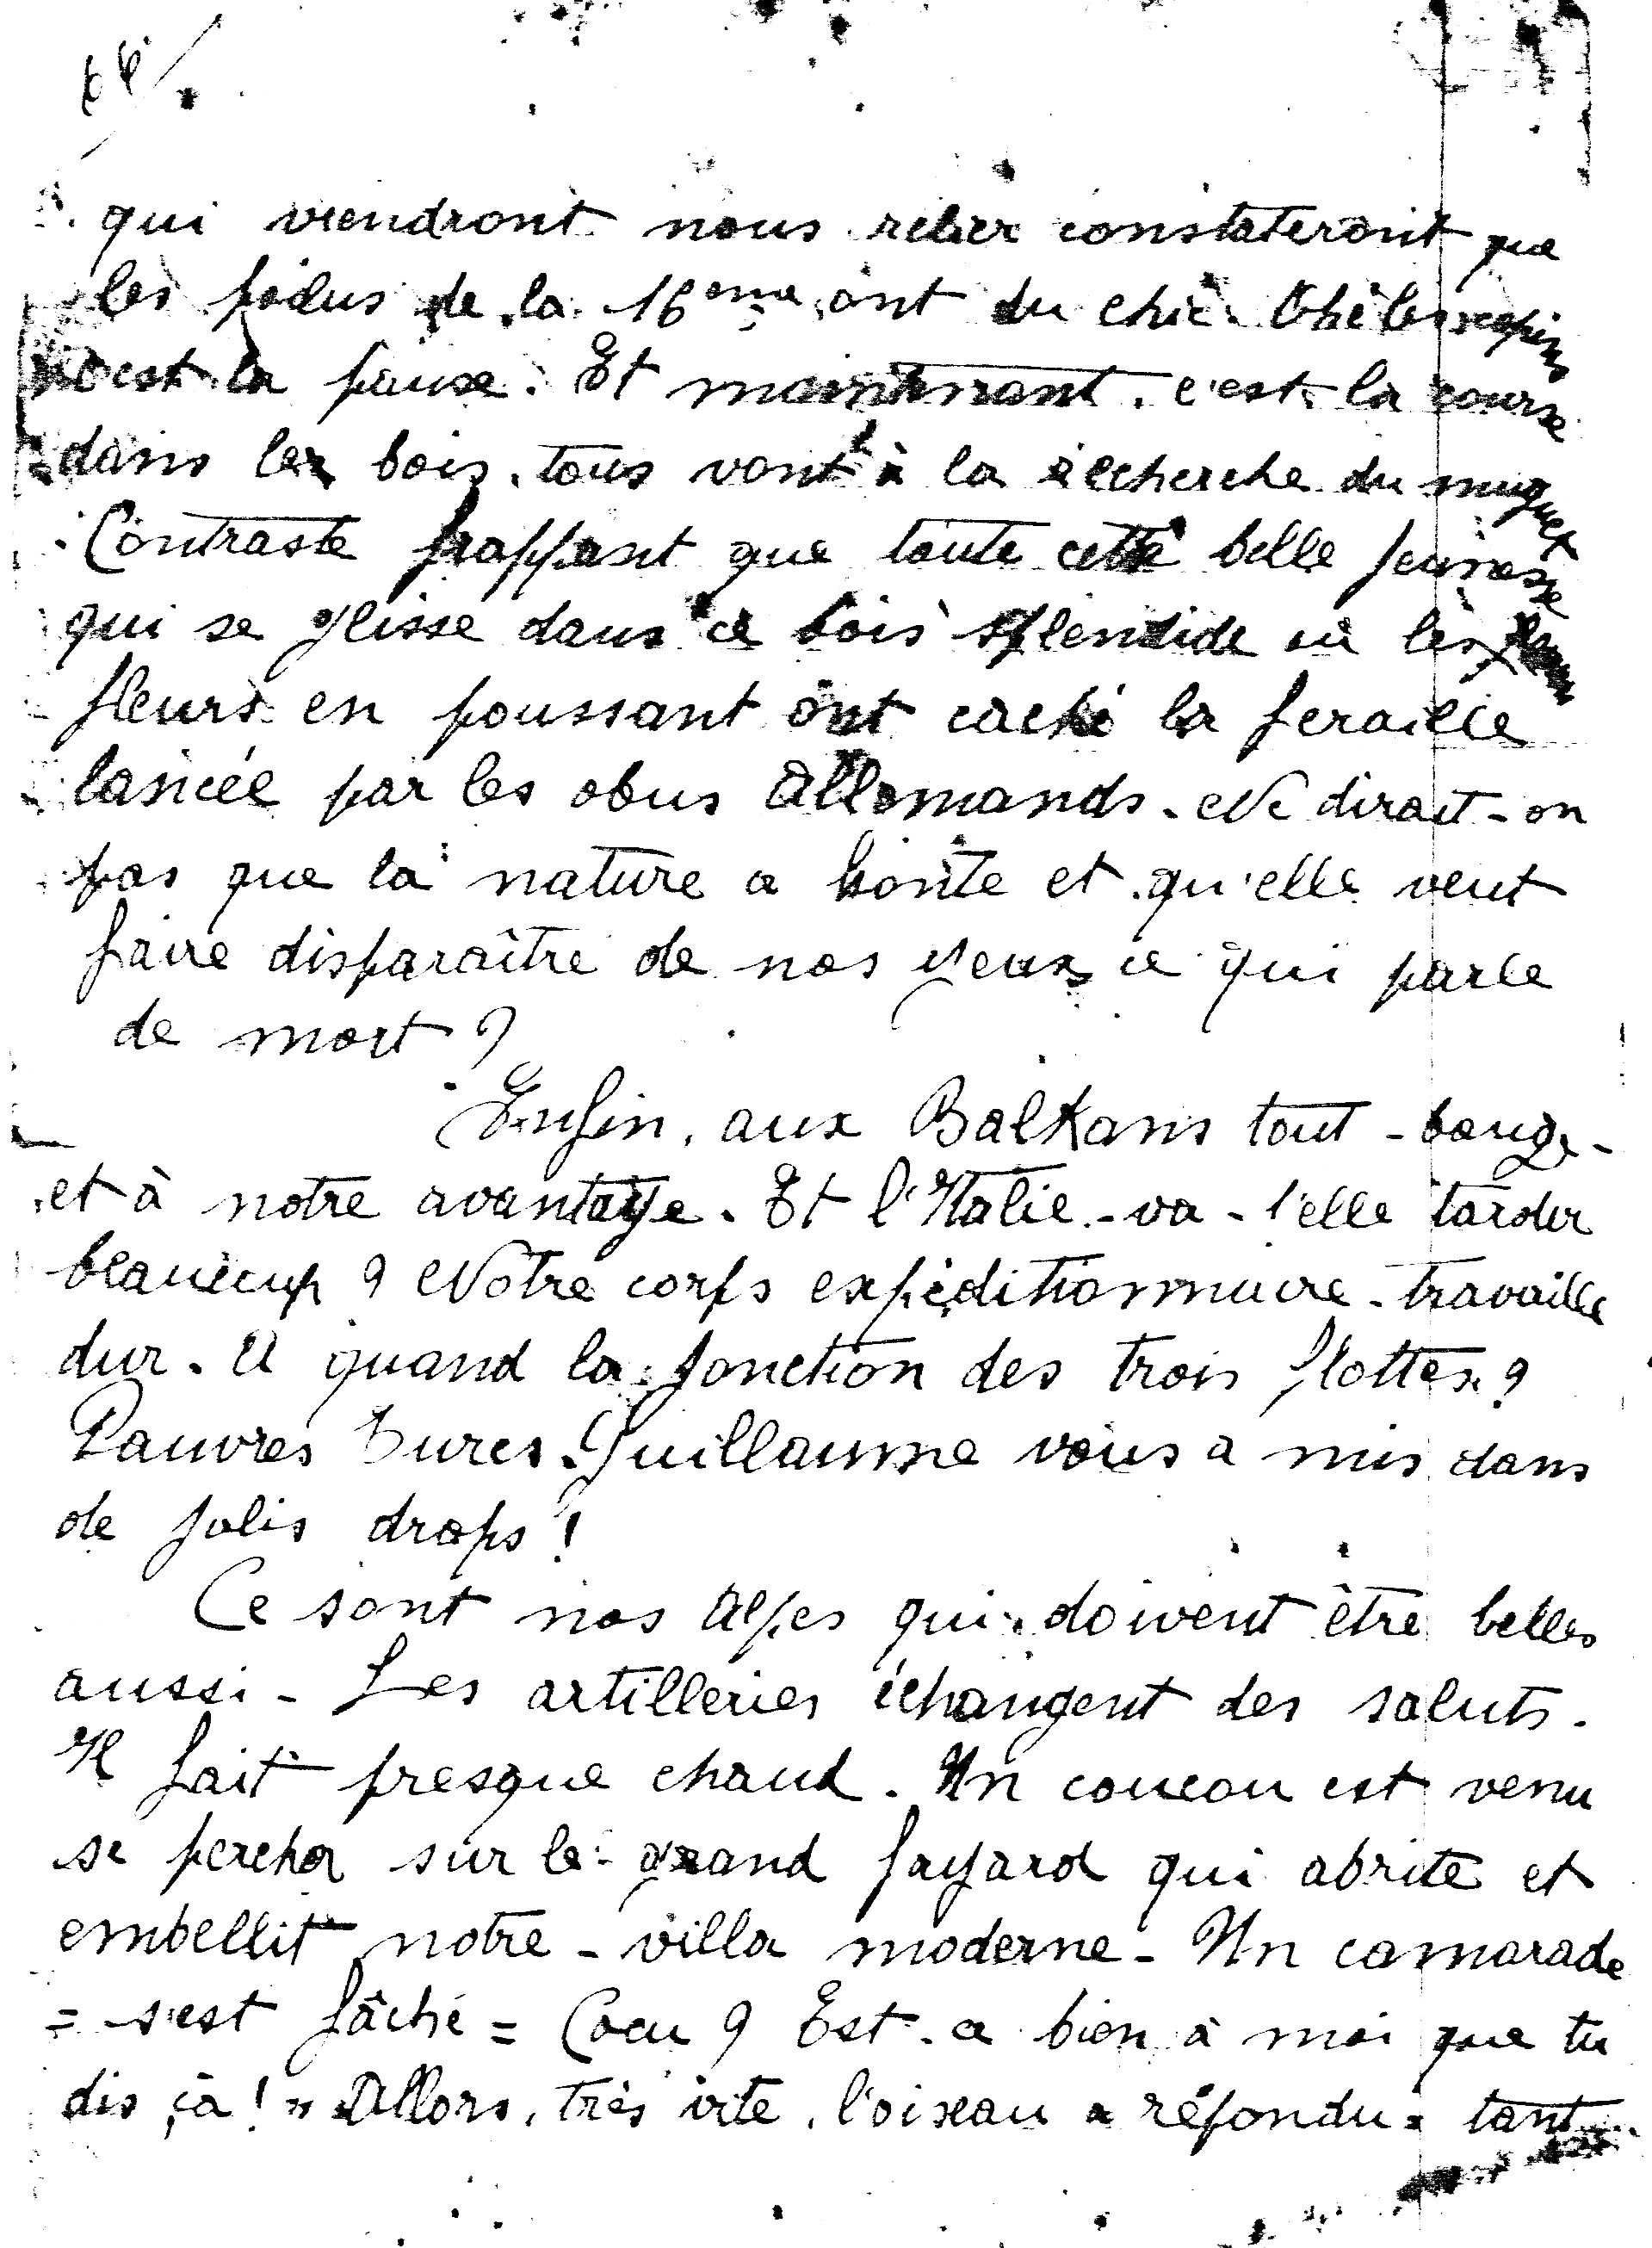 qui viendront nous relever constateront que
les poilus de la 16ème ont du chic. Ohé les sapins
c'est la pause. Et maintenant. c'est la course
dans les bois. tous vont à la recherche du muguet
Contraste frappant que toute cette belle jeunesse
qui se glisse dans ce bois splendide où les
fleurs en poussant ont caché la feraille
lancée par les obus Allemands. Ne dirait-on
pas que la nature a honte et qu'elle veut
faire disparaître de nos yeux ce qui parle
de mort ?
Enfin, aux Balkans tout - bouge -
et à notre avantage. Et l'Italie - va - t'elle tarder
beaucoup ? Notre corps expéditionnaire - travaille
dur. A quand la jonction des trois flottes ?
Pauvres Turcs. Guillaume vous a mis dans
de jolis draps !
Ce sont nos Alpes qui doivent être belles
aussi - Les artilleries échangent des saluts.
Il fait presque chaud. Un coucou est venu
se percher sur le grand fayard qui abrite et
embellit notre - villa moderne - Un camarade
= s'est fâché = Cocu ? Est-ce bien à moi que tu
dis ça ! " Allors, très vite, l'oiseau a répondu : tant